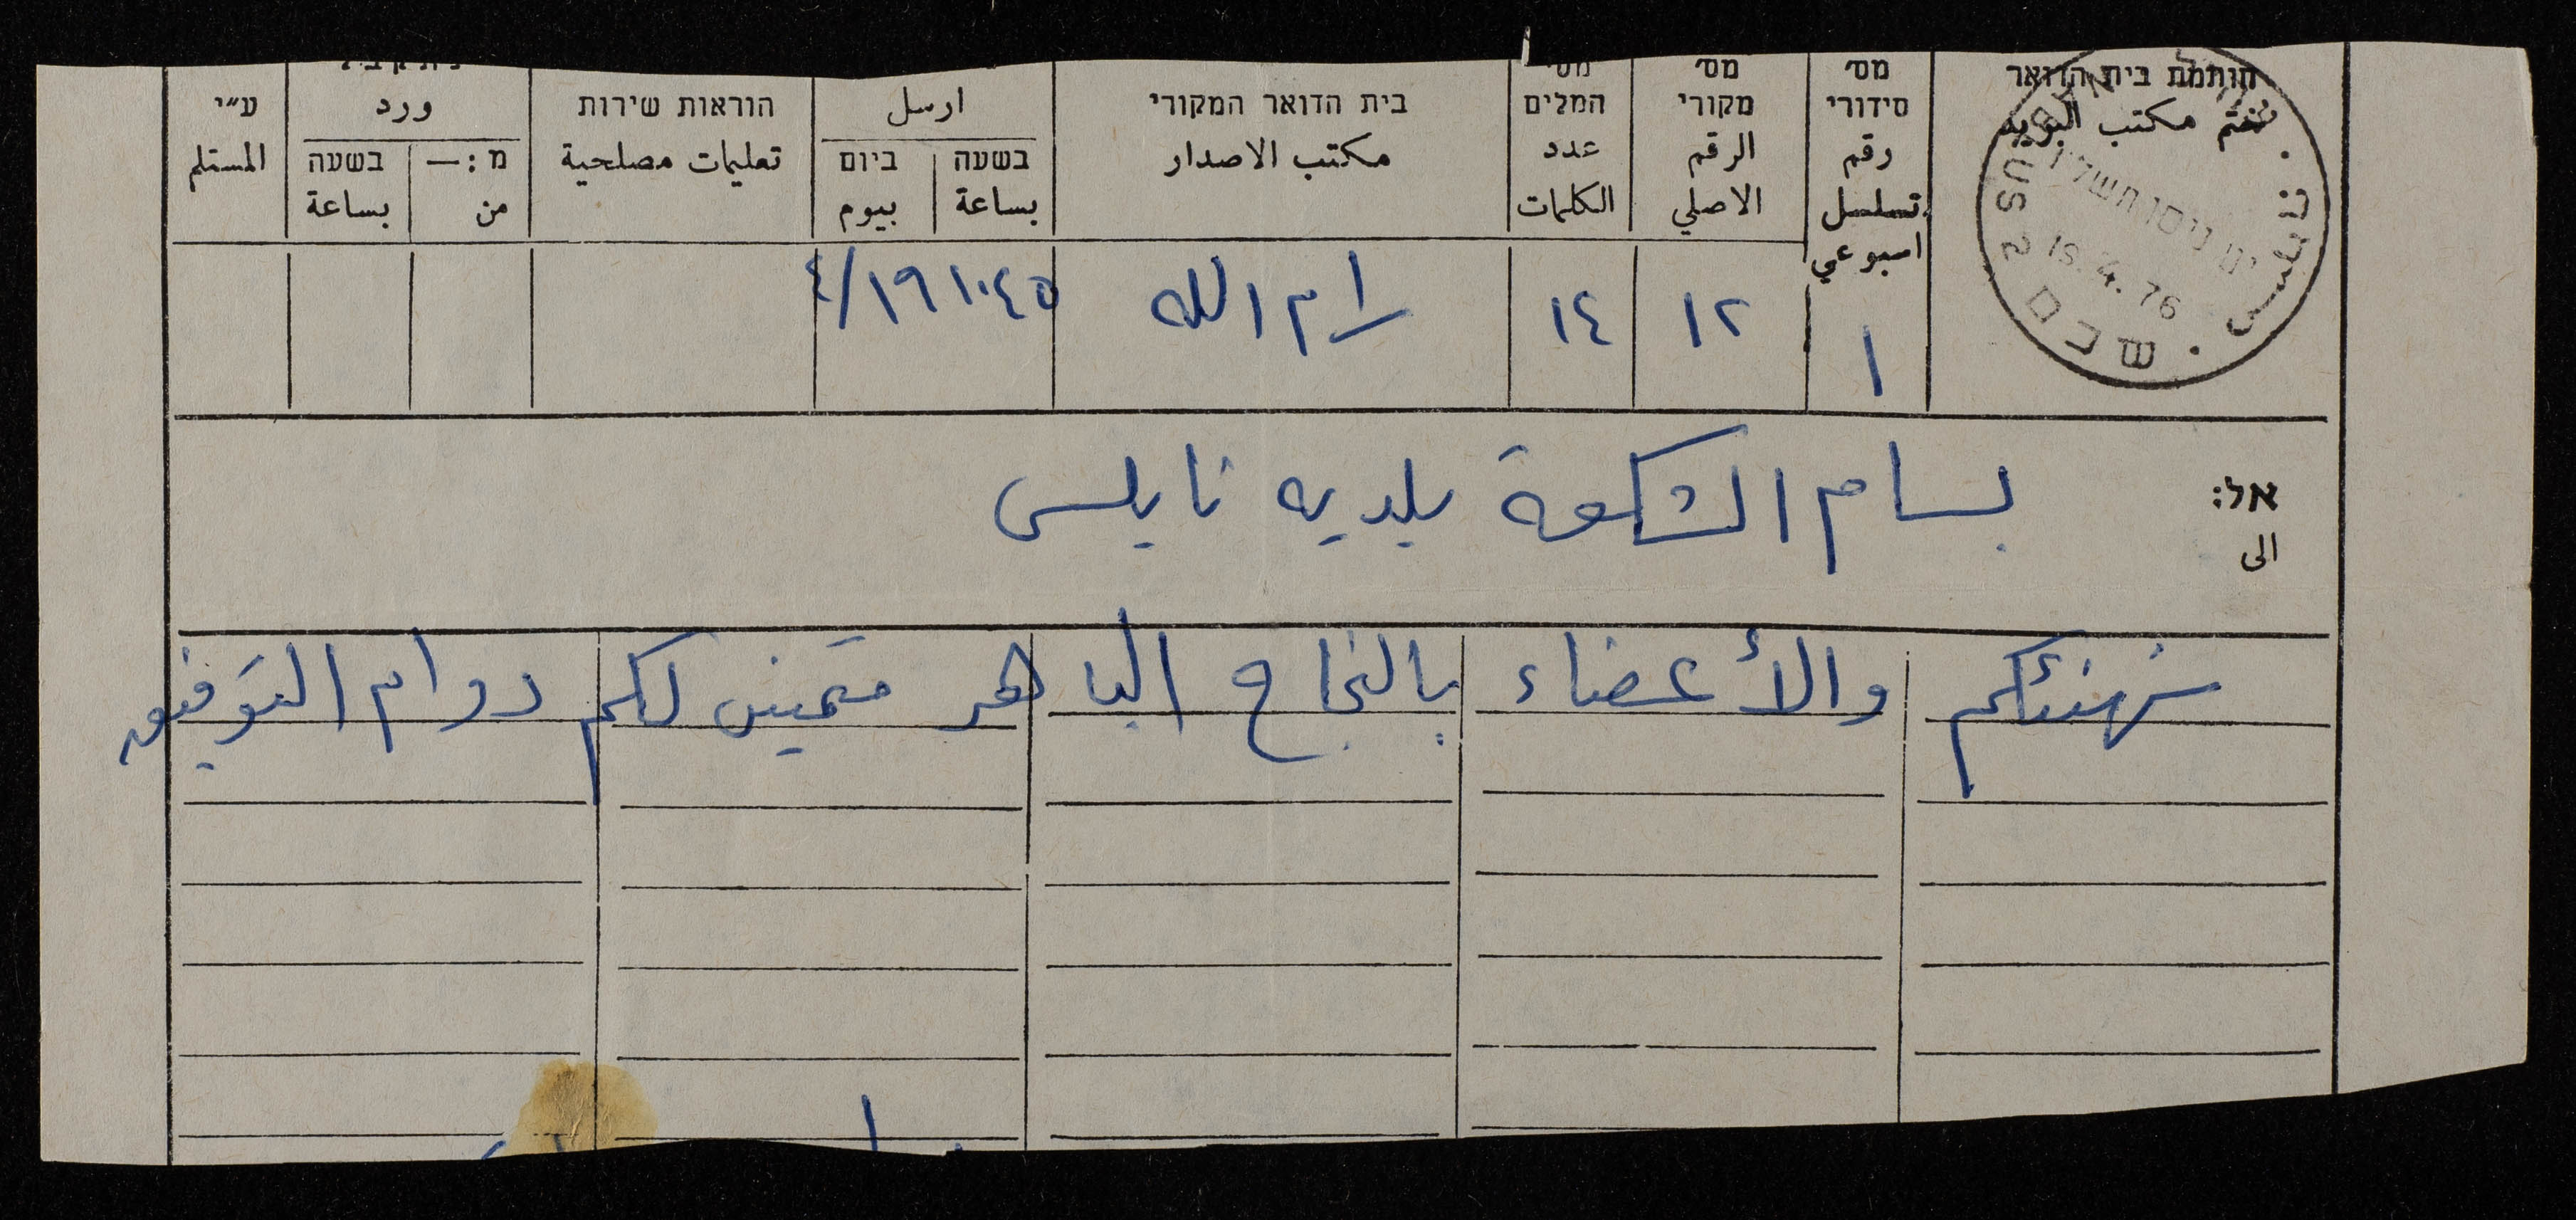 חותמת בית הדואר
ختم مكتب البريد
מס׳ סידורי
رقم تسلسل اسبوعي
מס׳ מקורי
الرقم الاصلي
מס׳ המלים
عدد الكلمات
בית הדואר המקורי
مكتب الاصدار
ارسل
בשעה ביום
بساعة بيوم
הוראות שירות
تعليمات مصلحية
ورد
מ:— בשעה
من بساعة
ע״י
المستلم
שכם
نابلس
י״ט ניסן תשל״ו
19.4.76
١ ١٢ ١٤ رام الله ١٠٤٥ ١٩/٤
אל:
الى
بسام الشكعة بلديه نابلس
نهنئكم والأعضاء بالنجاح الباهر متمنين لكم دوام التوفيق